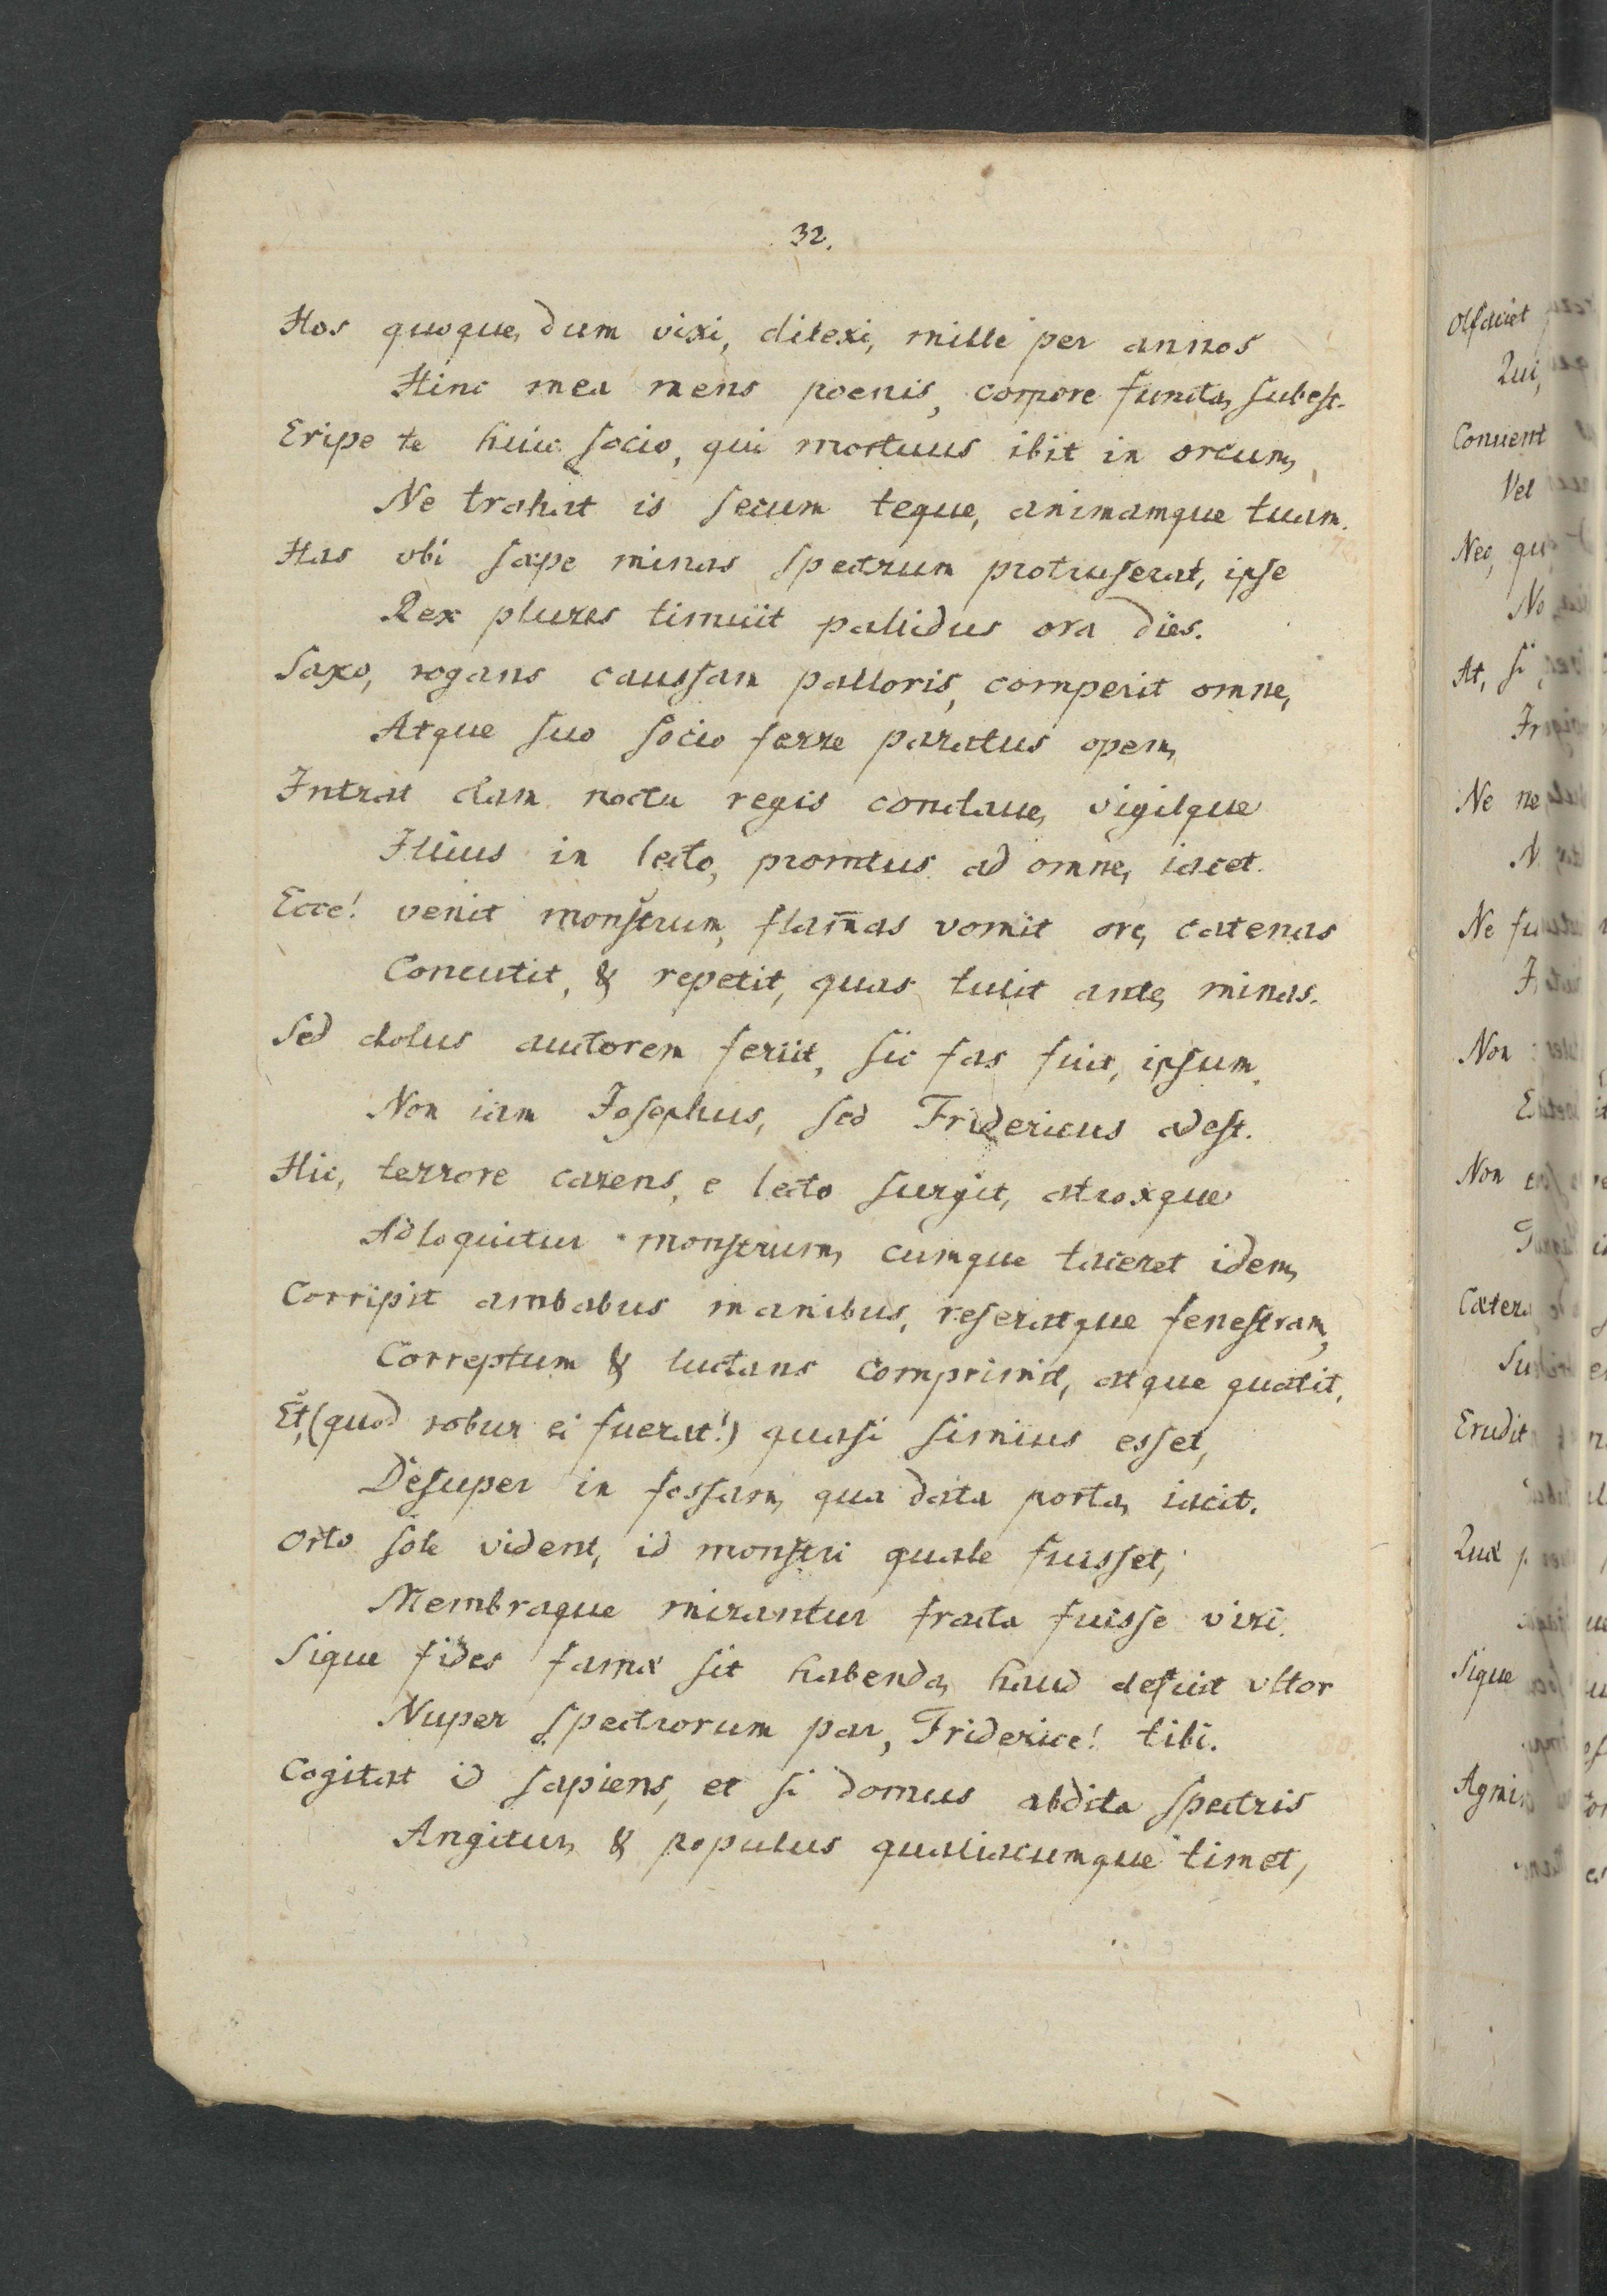 32.
Hos quoque, dum vixi, dilexi, mille per annos
Hinc mea mens poenis, corpore functa, subest.
Eripe te huic socio, qui mortuus ibit in orcum,
Ne trahat is secum teque, animamque tuam.
Has vbi sæpe minas spectrum protruserat, ipse
Rex plures timuit pallidus ora dies.
Saxo, rogans caussam palloris, comperit omne,
Atque suo socio ferre paratus opem,
Intrat clam noctu regis conclaue, vigilque
Illius in lecto, promtus ad omne, iacet.
Ecce! venit monstrum, flam̄as vomit ore, catenas
Concutit, & repetit, quas tulit ante, minas.
Sed dolus auctorem feriit, sic fas fuit, ipsum.
Non iam Josephus, sed Fridericus adest.
Hic, terrore carens, e lecto surgit, atroxque
Adloquitur monstrum, cumque taceret idem,
Corripit ambabus manibus, reseratque fenestram,
Correptum & luctans comprimit, atque quatit.
Et, (quod robur ei fuerat!) quasi simius esset,
Desuper in fossam, qua data porta, iacit.
Orto sole vident, id monstri quale fuisset,
Membraque mirantur fracta fuisse viri.
Sique fides famæ sit habenda, haud defuit vltor
Nuper spectrorum par, Friderice! tibi.
Cogitat id sapiens, et si domus abdita spectris
Angitur, & populus qualiacumque timet,
Olfaciet
Qui,
Conuent
Vel
Nec, qu
No
At, si
Ne ne
N
Ne fu
Non
E
Non
Cætera
Su
Erudit
Quæ p
Sique
Agmin